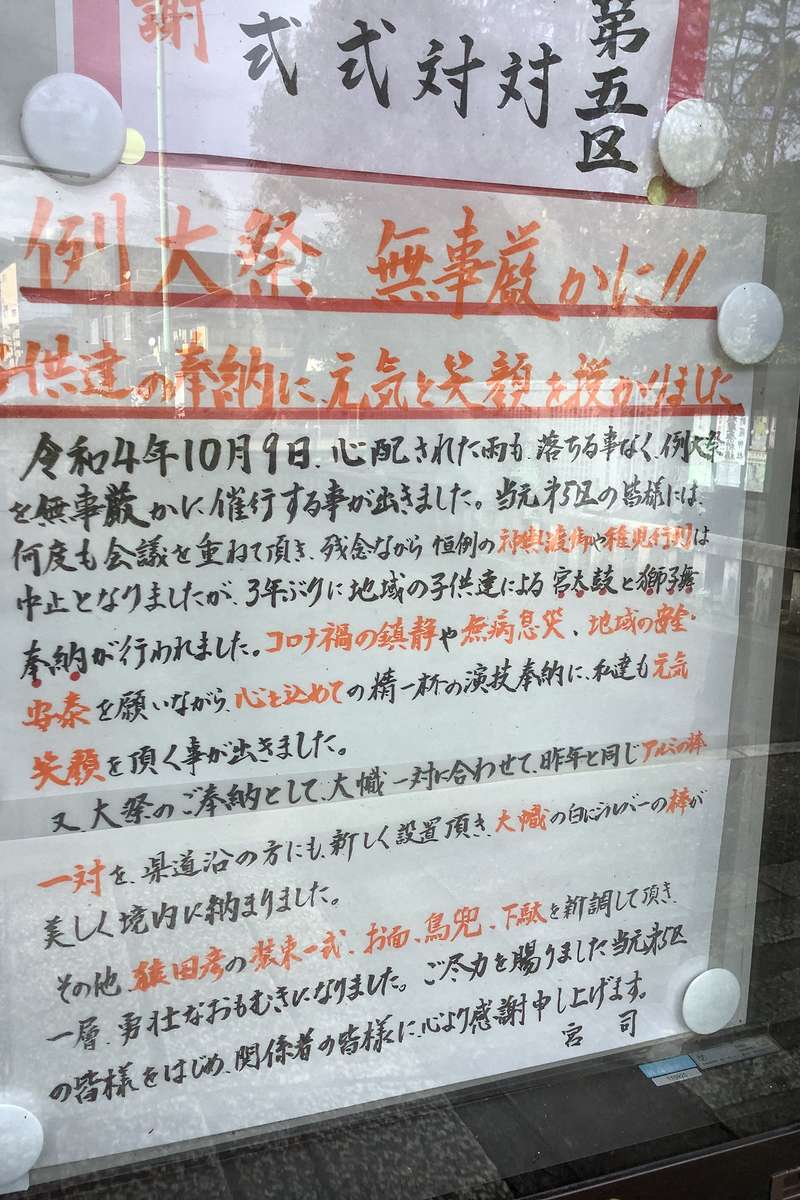 第五区
対
対
式
式
謝
例大祭 無事厳かに!!
子供達の奉納に元気と笑顔を授かりました
令和4年10月9日、心配された雨も、落ちる事なく、例大祭
を無事厳かに催行する事が出きました。当元第5区の皆様には、
何度も会議を重ねて頂き、残念ながら 恒例の神輿渡御や稚児行列は
中止となりましたが、3年ぶりに地域の子供達による 宮太鼓と獅子舞
奉納が行われました。コロナ禍の鎮静や無病息災、地域の安全・
安泰を願いながら、心を込めての精一杯の演技奉納に、私達も元気
笑顔を頂く事が出きました。
又 大祭のご奉納として、大幟一対に合わせて、昨年と同じアルミの棒
一対を、県道沿の方にも、新しく設置頂き、大幟の白にシルバーの棒が
美しく境内に納まりました。
その他、猿田彦の装束一式、お面、鳥兜、下駄を新調して頂き、
一層、勇壮なおもむきになりました。ご尽力を賜りました当元第5区
の皆様をはじめ、関係者の皆様に、心より感謝申し上げます。
宮 司